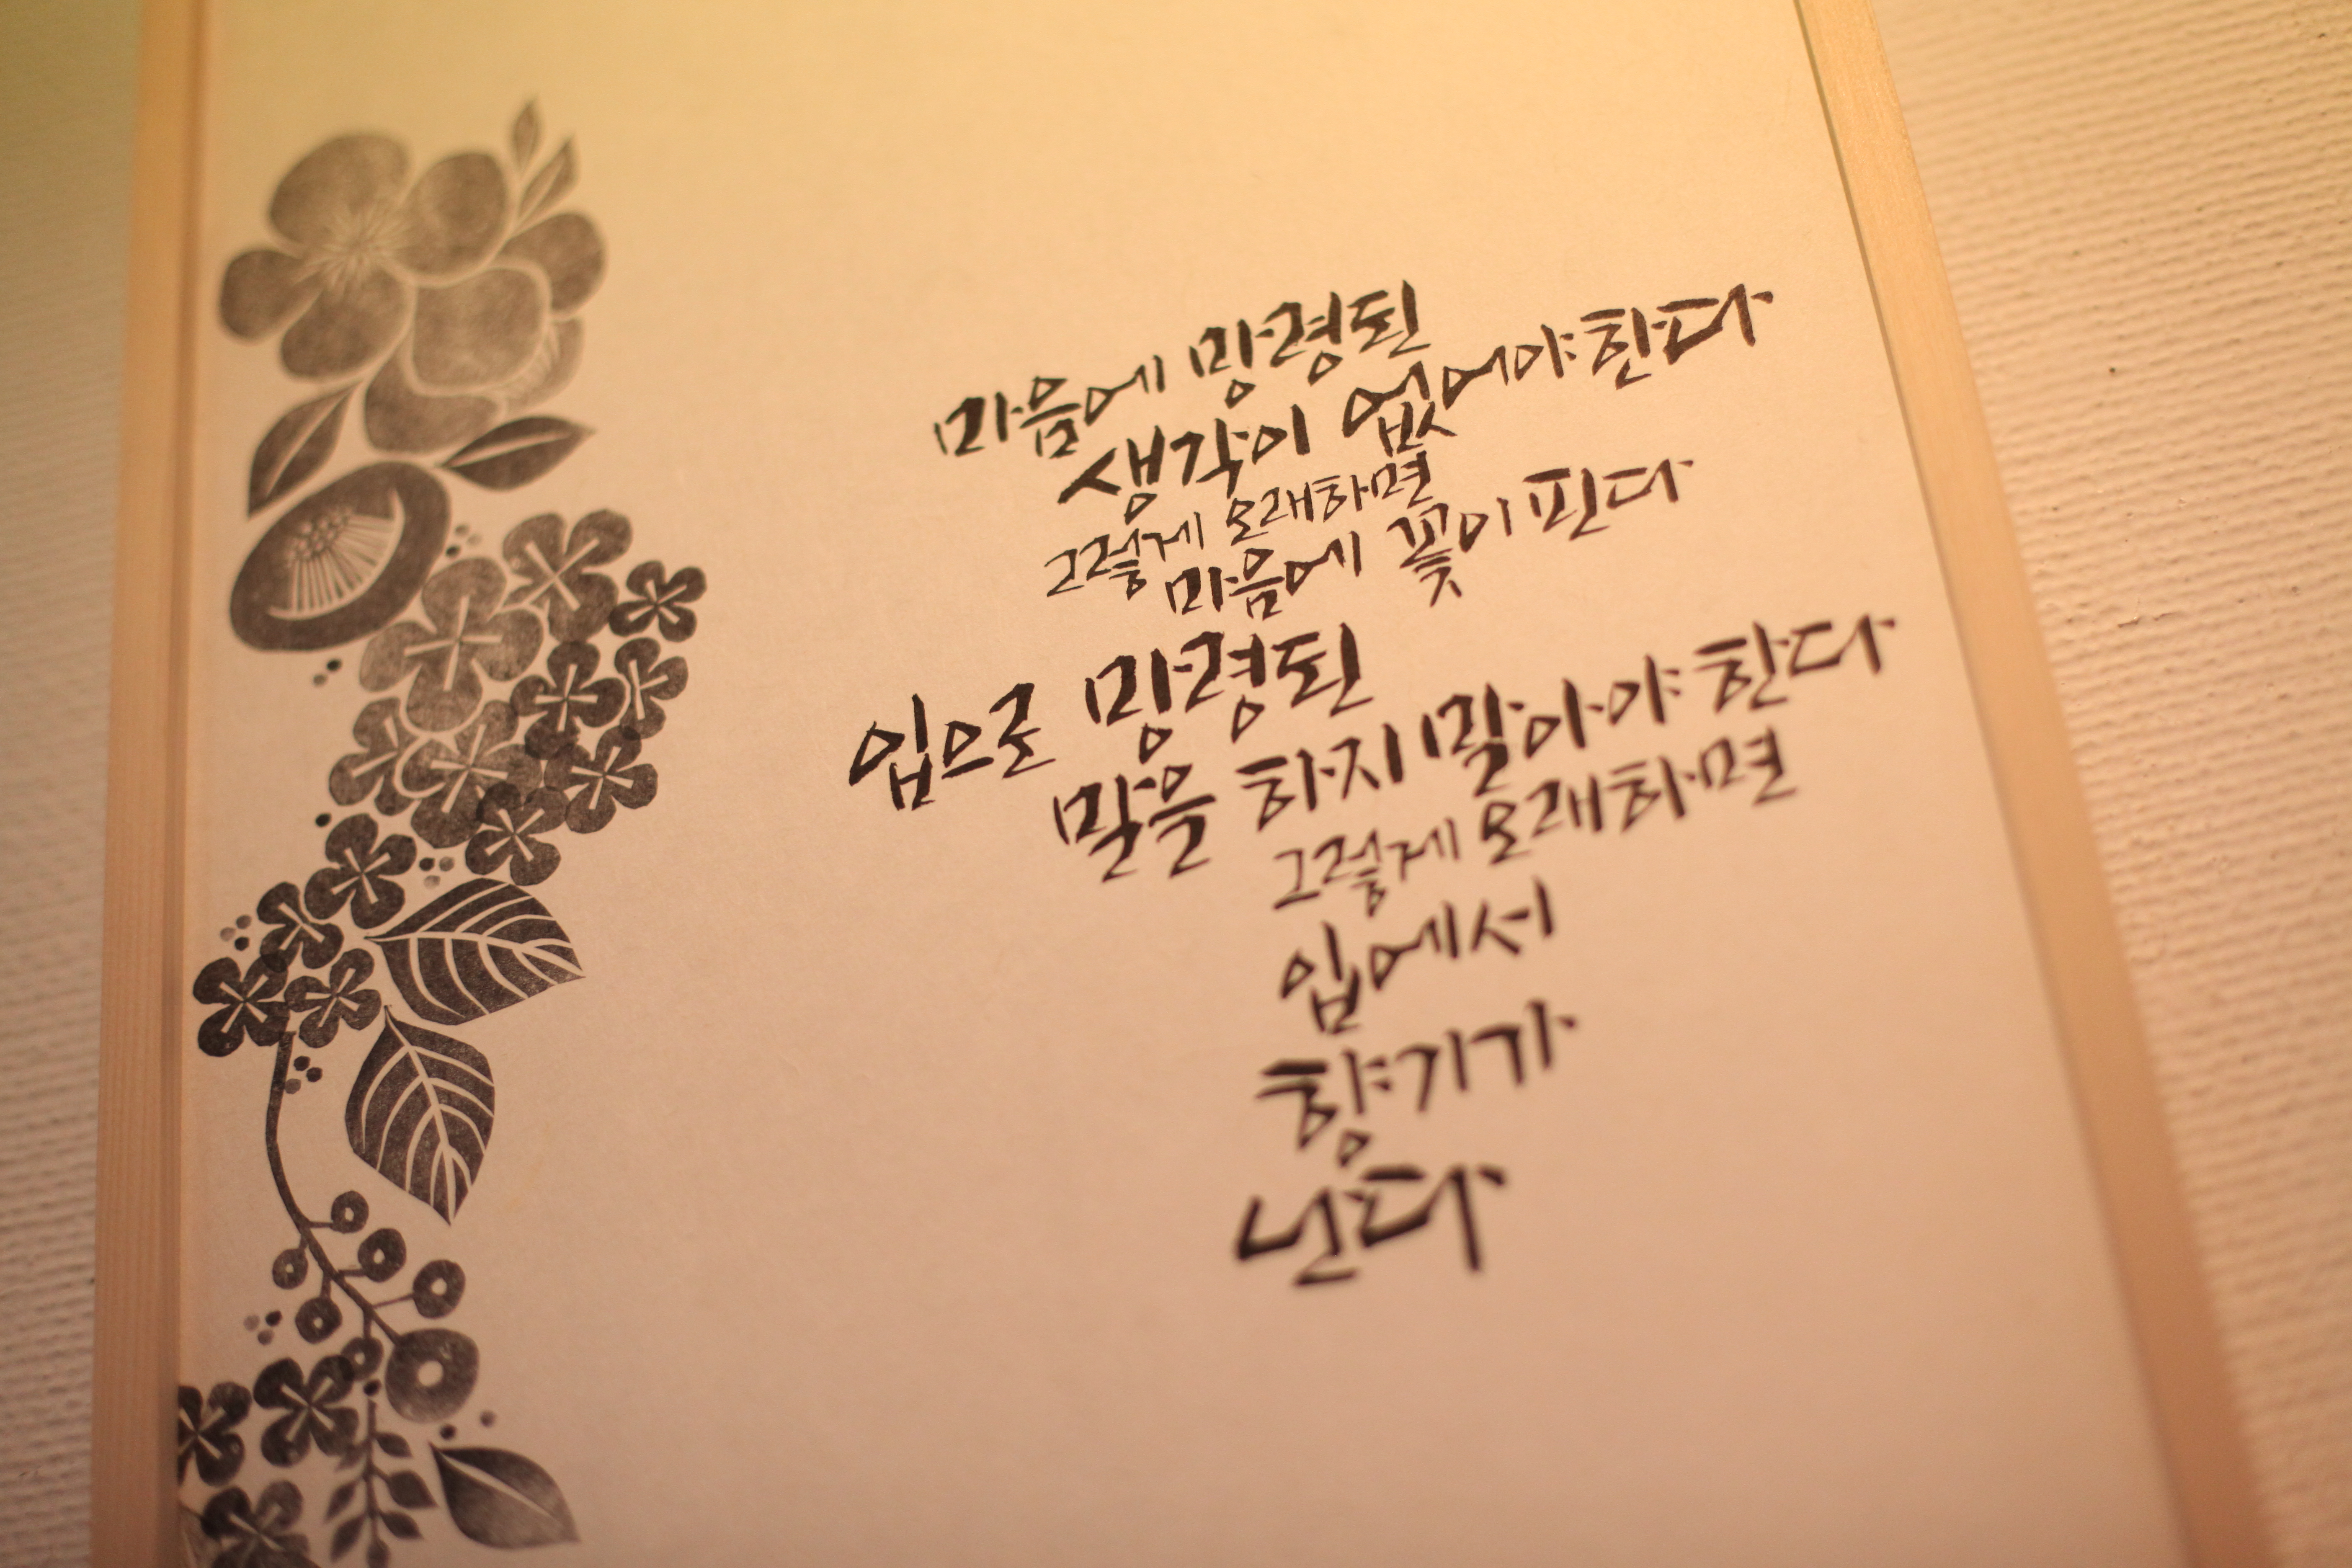 마음에 망령된
생각이 없어야한다
그렇게 오래하면
마음에 꽃이 핀다
입으로 망령된
말을 하지 말아야 한다
그렇게 오래하면
입에서
향기가
난다